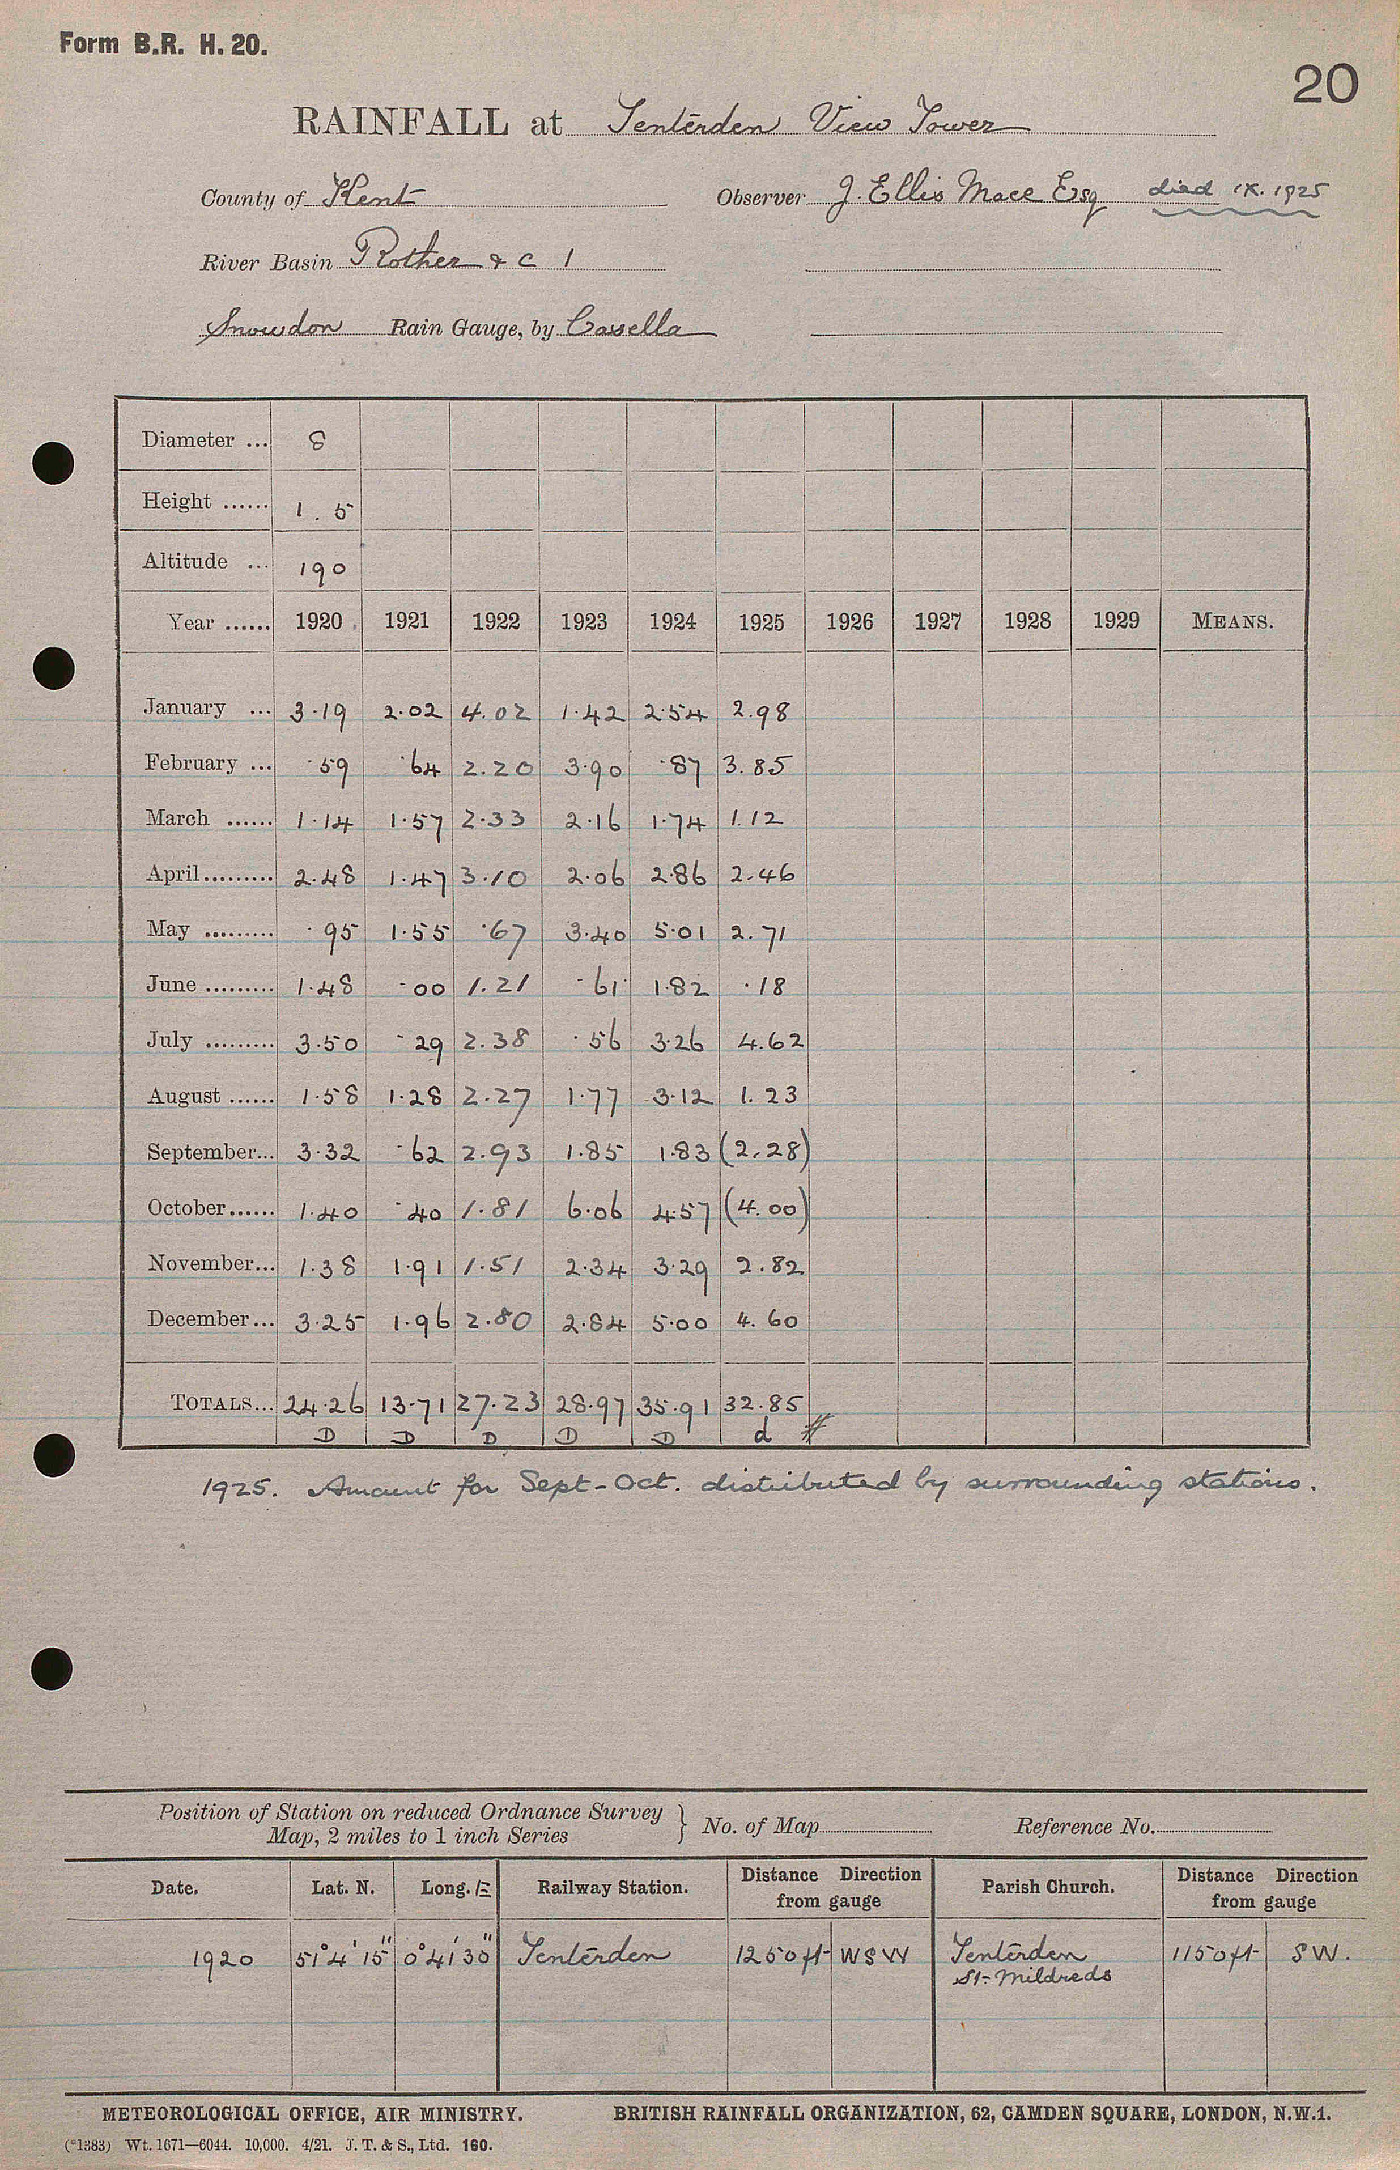 Form B.R. H. 20.
20
RAINFALL at Tenterden View Tower
County of Kent Observer J. Ellis Mace Esq died IX. 1925
River Basin Rother & c 1
Snowdon Rain Gauge, by Casella
Diameter ... 8
Height ...... 1.5
Altitude ... 190
Year ...... 1920 1921 1922 1923 1924 1925 1926 1927 1928 1929 MEANS.
January ... 3.19 2.02 4.02 1.42 2.54 2.98
February ... .59 .64 2.20 3.90 .87 3.85
March ...... 1.14 1.57 2.33 2.16 1.74 1.12
April ......... 2.48 1.47 3.10 2.06 2.86 2.46
May ......... .95 1.55 .67 3.40 5.01 2.71
June ......... 1.48 .00 1.21 .61 1.82 .18
July ......... 3.50 .29 2.38 .56 3.26 4.62
August ...... 1.58 1.28 2.27 1.77 3.12 1.23
September... 3.32 .62 2.93 1.85 1.83 (2.28)
October...... 1.40 .40 1.81 6.06 4.57 (4.00)
November... 1.38 1.91 1.51 2.34 3.29 2.82
December... 3.25 1.96 2.80 2.84 5.00 4.60
TOTALS... 24.26 13.71 27.23 28.97 35.91 32.85
D D D D D d #
1925. Amount for Sept-Oct. distributed by surrounding stations.
Position of Station on reduced Ordnance Survey
Map, 2 miles to 1 inch Series } No. of Map Reference No.
Date. Lat. N. Long. E Railway Station. Distance Direction from gauge Parish Church. Distance Direction from gauge
1920 51°4'15" 0°41'30" Tenterden 1250ft WSW Tenterden 1150ft SW.
St. Mildreds
METEOROLOGICAL OFFICE, AIR MINISTRY. BRITISH RAINFALL ORGANIZATION, 62, CAMDEN SQUARE, LONDON, N.W.1.
(*1383) Wt. 1671—6044. 10,000. 4/21. J. T. & S., Ltd. 160.